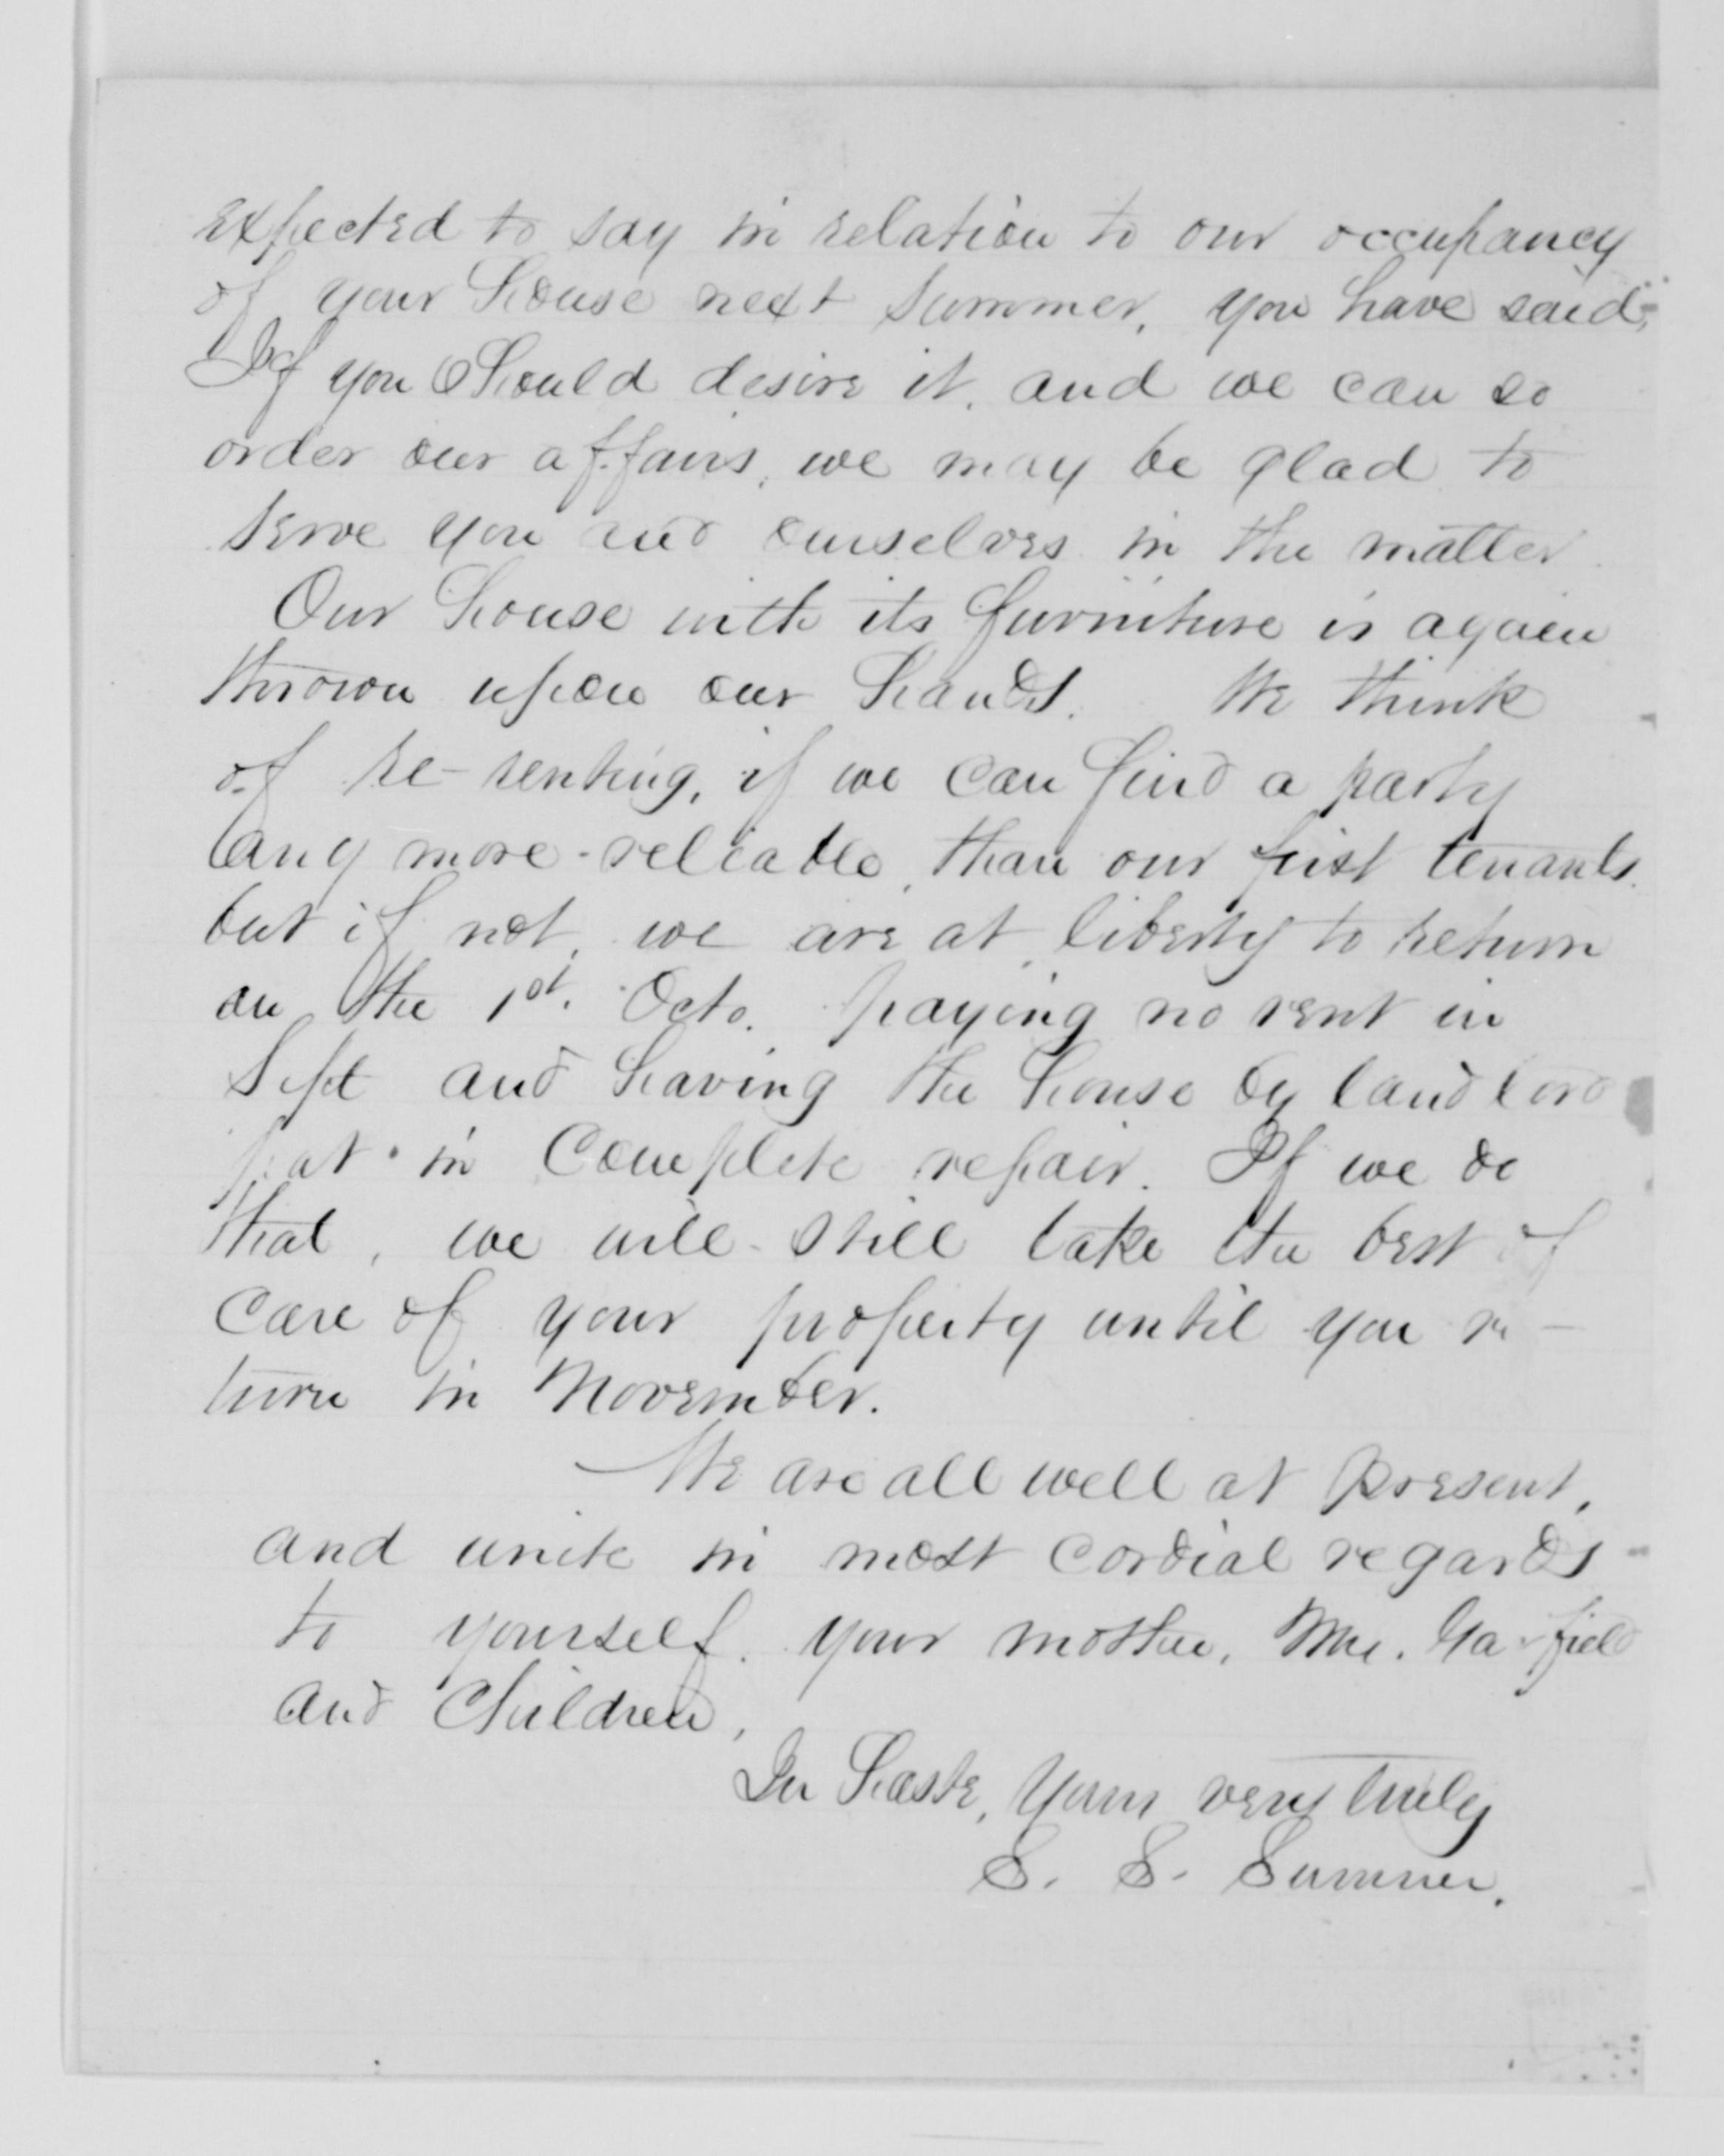 expected to say in relation to our occupancy
of your house next summer, you have said;
If you should desire it, and we can so
order our affairs, we may be glad to
serve you and ourselves in the matter
Our house with its furniture is again
thrown upon our hands. We think
of re-renting, if we can find a party
any more reliable, than our first tenants.
but if not, we are at liberty to return
on the 1st. Octo. paying no rent in
Sept and having the house by landlord
put in complete repair. If we do
that, we will still take the best of
care of your property until you re-
turn in November.
We are all well at present,
and unite in most cordial regards
to yourself, your mother, Mrs. Garfield
and Children,
In haste, Yours very truly
S. S. Sumner.